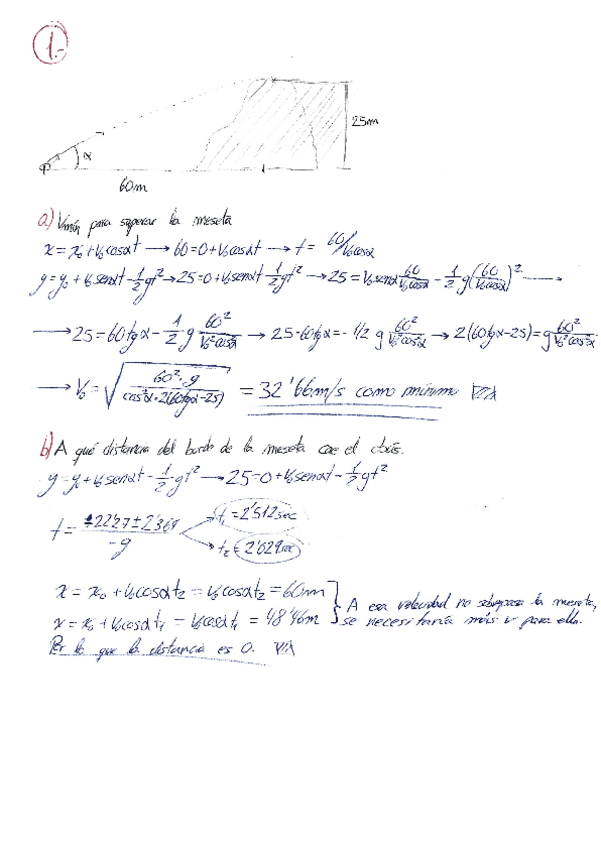 1.-
α
25m
60m
a) Vmín para superar la meseta
x = x₀ + v₀cosαt → 60 = 0 + v₀cosαt → t = 60/v₀cosα
y = y₀ + v₀senαt - 1/2 gt² → 25 = 0 + v₀senαt - 1/2 gt² → 25 = v₀senα 60/v₀cosα - 1/2 g(60/v₀cosα)² →
→ 25 = 60tgα - 1/2 g 60²/v₀²cos²α → 25-60tgα = -1/2 g 60²/v₀²cos²α → 2(60tgα-25) = g 60²/v₀²cos²α
→ v₀ = √(60²·g / cos²α·2(60tgα-25)) = 32'66m/s como mínimo
b) A qué distancia del borde de la meseta cae el
y = y₀ + v₀senαt - 1/2 gt² → 25 = 0 + v₀senαt - 1/2 gt²
t₁ = 2'512sec
t = ±22'27 ± 2'369 / -g
t₂ = 2'629sec
x = x₀ + v₀cosαt₂ = v₀cosαt₂ = 60m
x = x₀ + v₀cosαt₁ = v₀cosαt₁ = 48'46m
A esa velocidad no sobrepasa la meseta,
se necesitaría más v para ello.
Por lo que la distancia es 0.